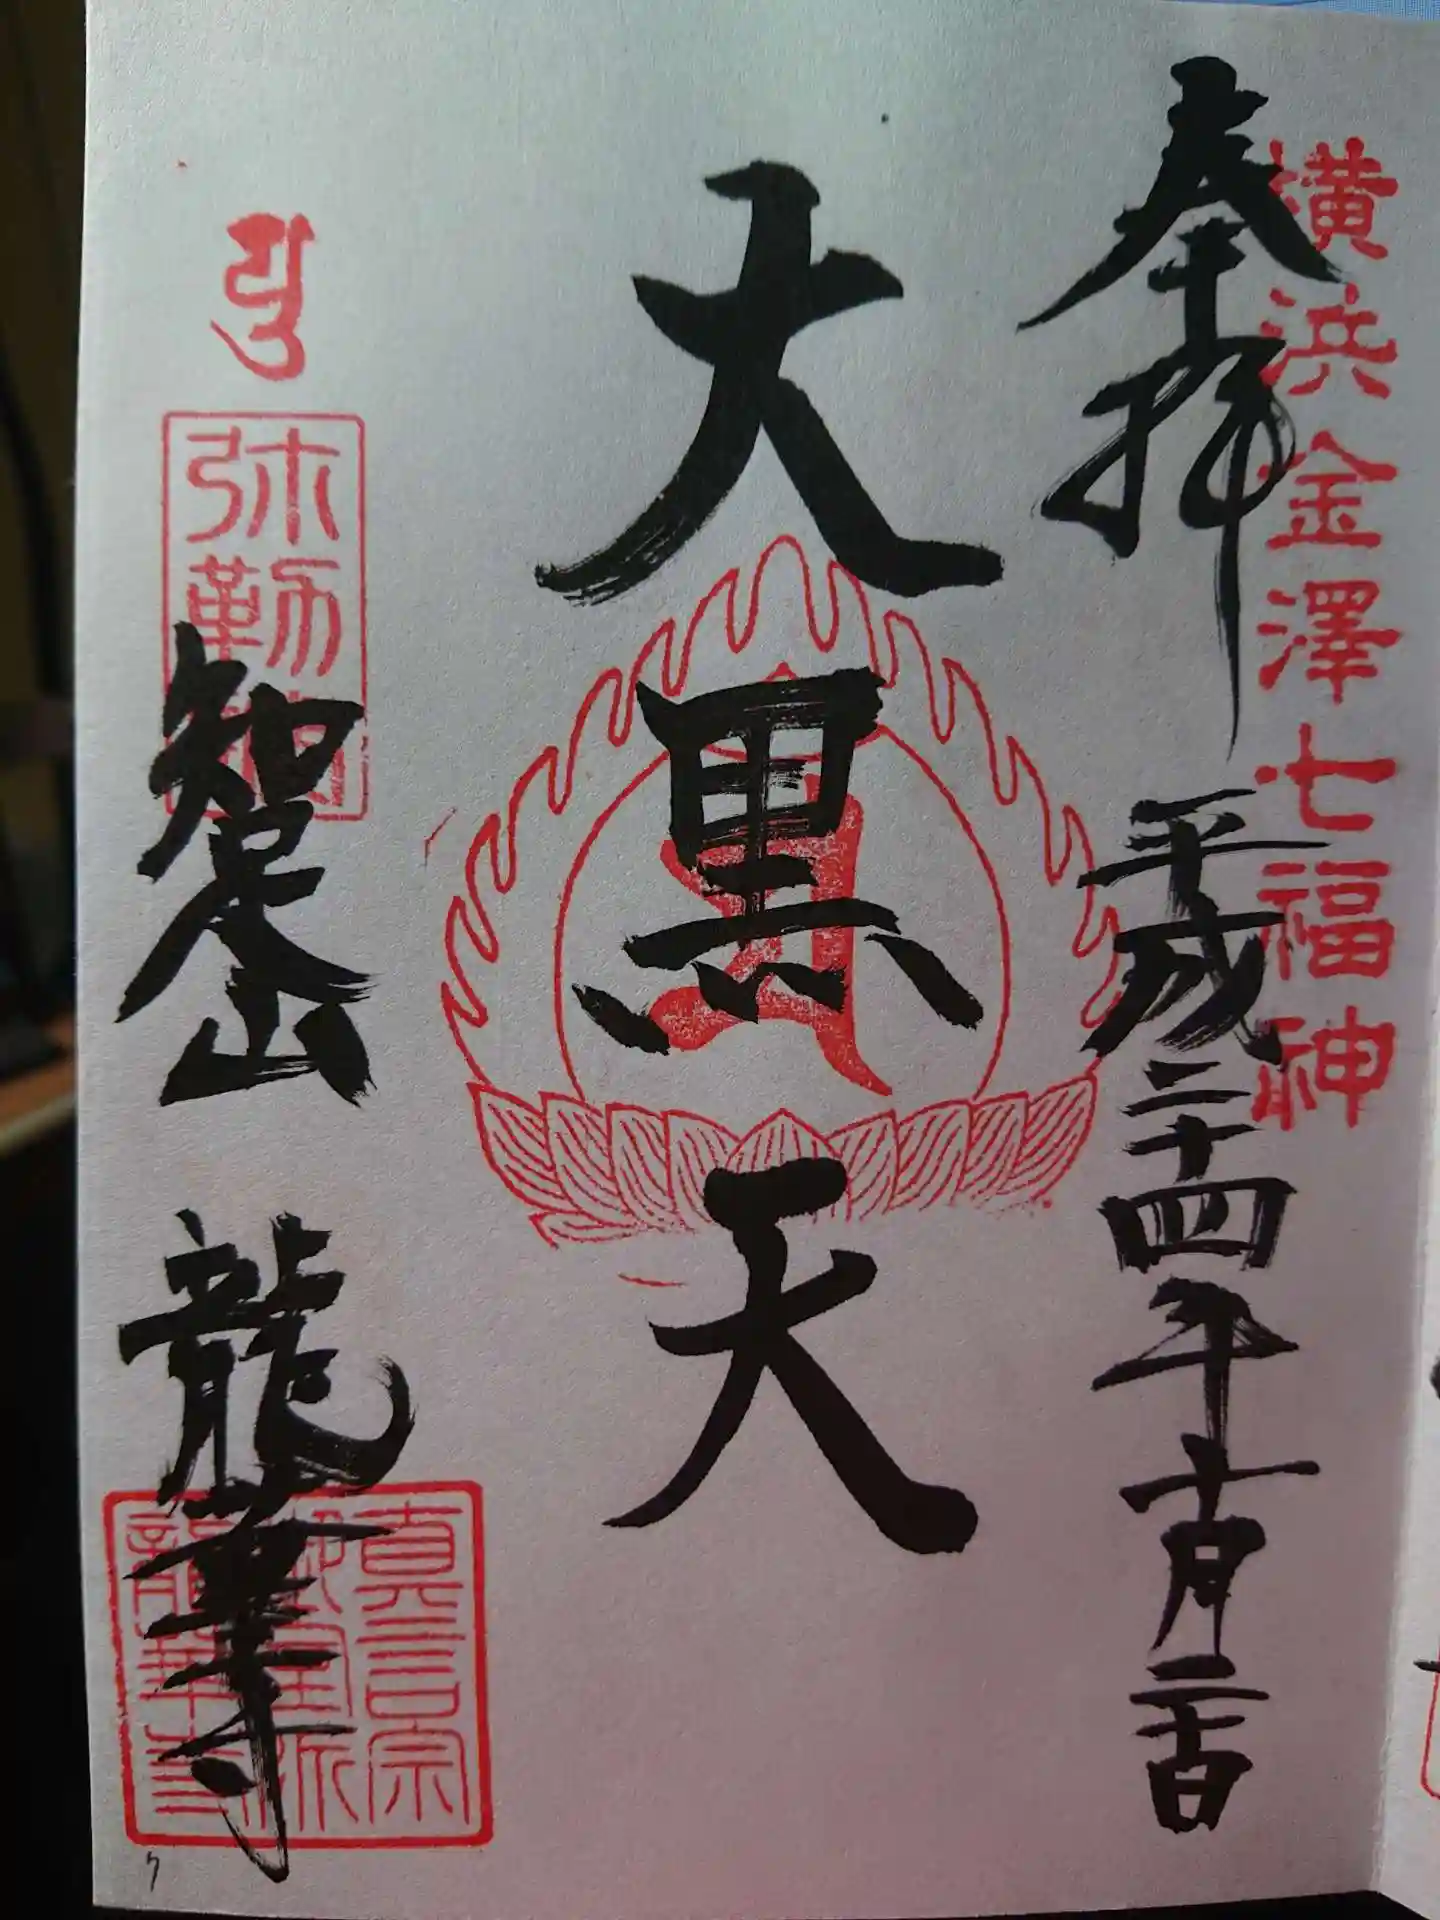 横浜金澤七福神
奉拝
平成二十四年十月二十日
大黒天
弥勒
知足山
龍華寺
真言宗
御室派
龍華寺